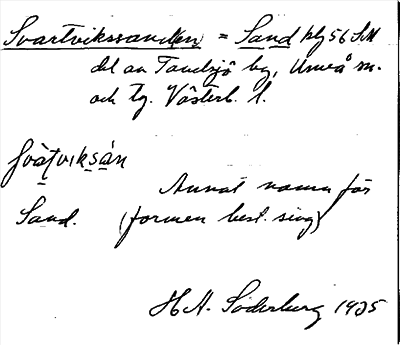 Svartvikssanden = Sand hg 56 SM
del av Tavelsjö by, Umeå sn.
och tg. Västerb. l.
svàţviksán
Annat namn för
Sand. (formen best. sing)
H A. Söderberg 1935